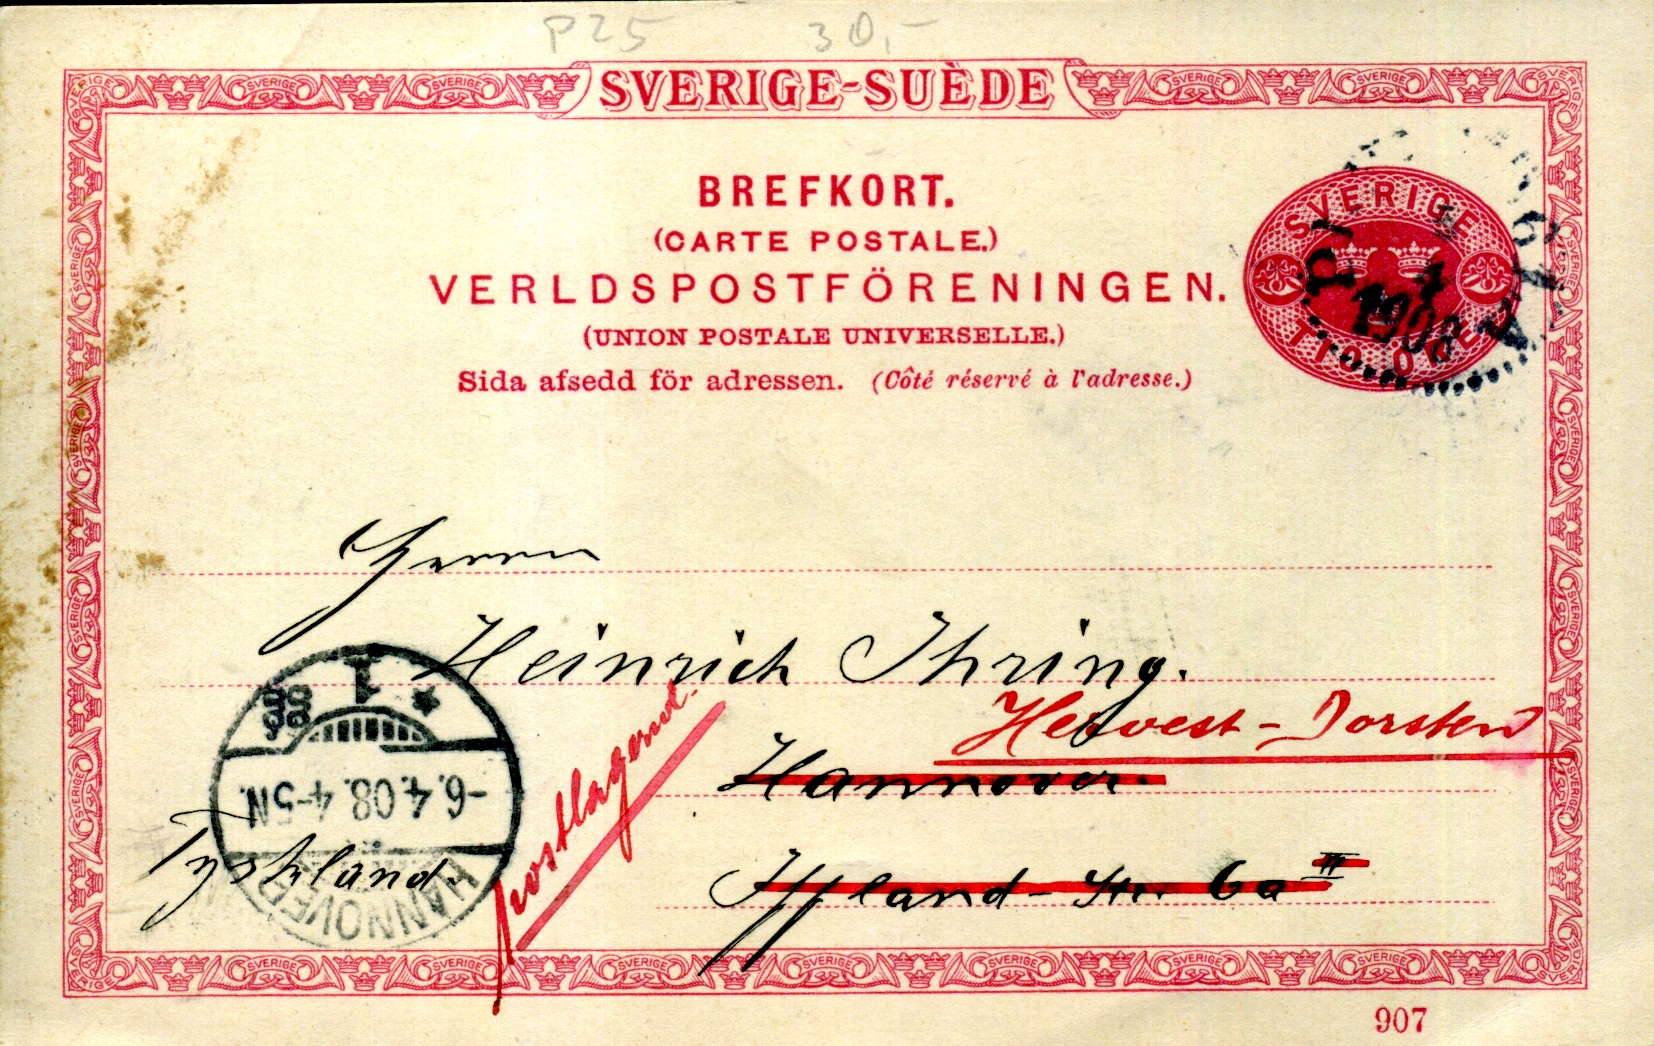 P25 30,-
SVERIGE-SUÈDE
BREFKORT.
(CARTE POSTALE.)
VERLDSPOSTFÖRENINGEN.
(UNION POSTALE UNIVERSELLE.)
Sida afsedd för adressen. (Côté réservé à l'adresse.)
SVERIGE
TIO ÖRE
4
1908
Herrn
Heinrich Ihring.
Hervest-Dorsten
postlagernd.
Hannover.
Tyskland.
Iffland-Str. 6a III
HANNOVER
-6.4.08.4-5N.
* 1
907